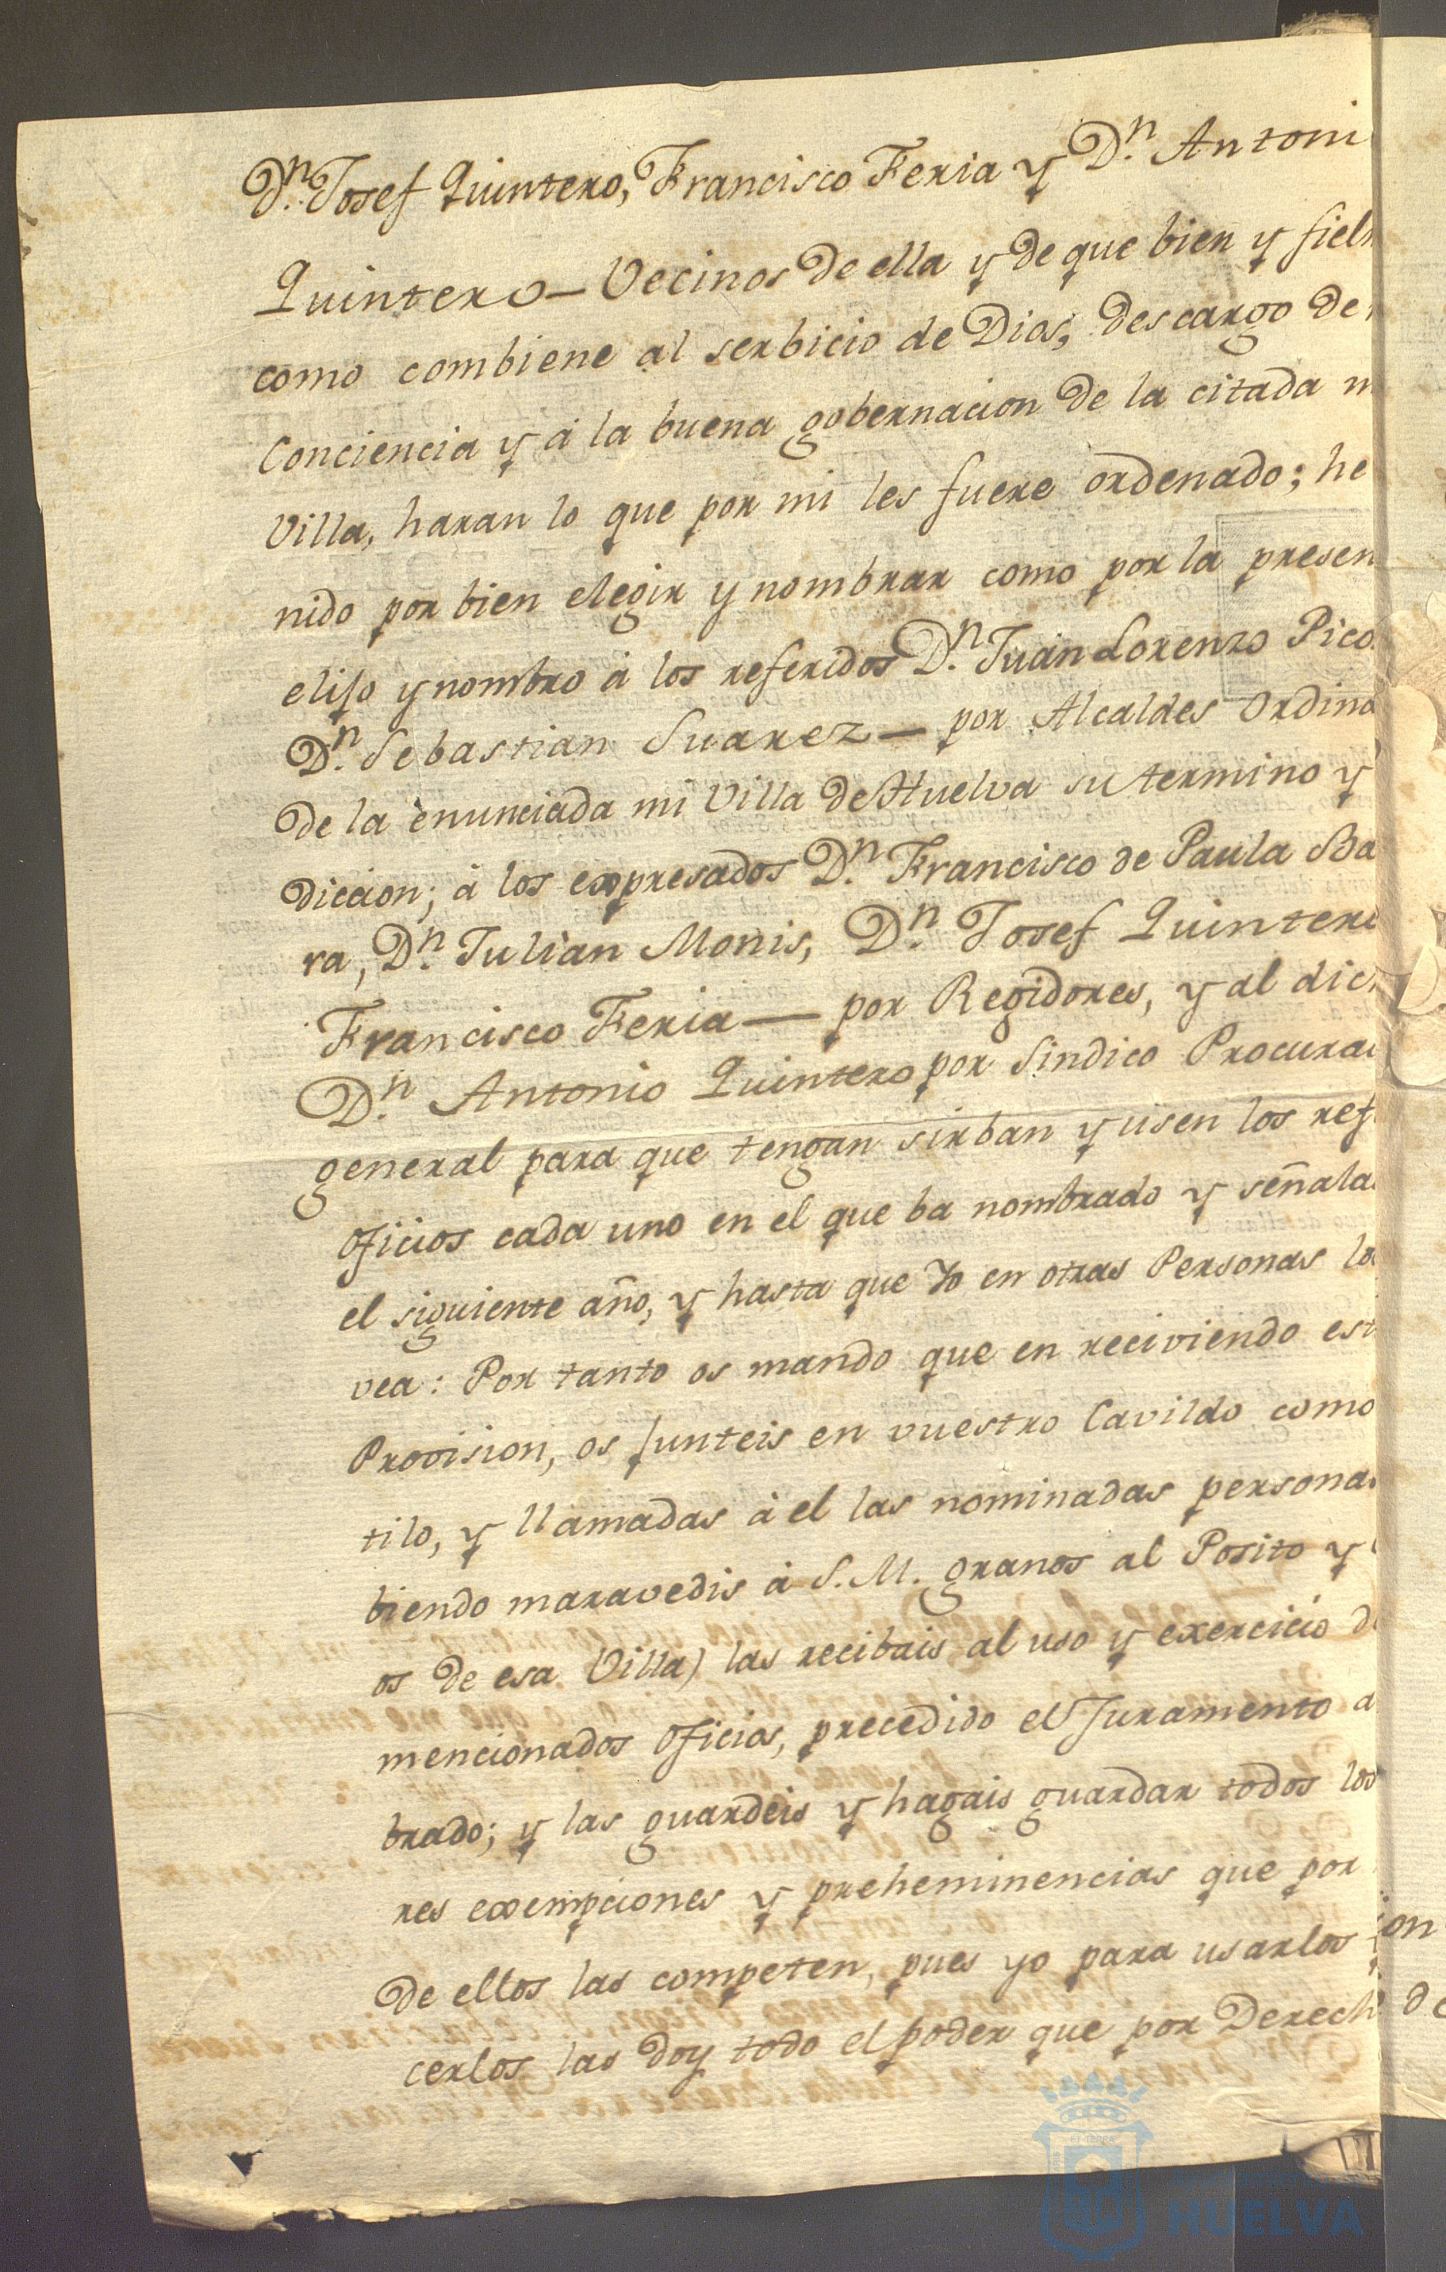 D.n Josef Quintero, Francisco Feria y D.n Antoni
Quintero — Vecinos de ella y de que bien y fiel
como combiene al serbicio de Dios, descargo de
Conciencia y á la buena gobernacion de la citada m
Villa, haran lo que por mi les fuere ordenado; he
nido por bien elegir y nombrar como por la presen
elijo y nombro á los referidos D.n Juan Lorenzo Pico
D.n Sebastian Suarez — por Alcaldes Ordina
de la enunciada mi Villa de Huelva su termino y
diccion; á los expresados D.n Francisco de Paula Ba
ra, D.n Julian Monis, D.n Josef Quintero
Francisco Feria — por Regidores, y al dic
D.n Antonio Quintero por Sindico Procura
general para que tengan sirban y usen los ref
oficios cada uno en el que ba nombrado y señala
el siguiente año, y hasta que Yo en otras Personas lo
vea: Por tanto os mando que en reciviendo est
Provision, os junteis en vuestro Cavildo como
tilo, y llamadas á el las nominadas persona
biendo maravedis á S.M. granos al Posito y
os de esa Villa) las recibais al uso y exercicio d
mencionados oficios, precedido el Juramento a
brado; y las guardeis y hagais guardar todos los
res exempciones y preheminencias que por
de ellos las competen, pues yo para usarlos
ion
cerlos las doy todo el poder que por Derech
de
HUELVA